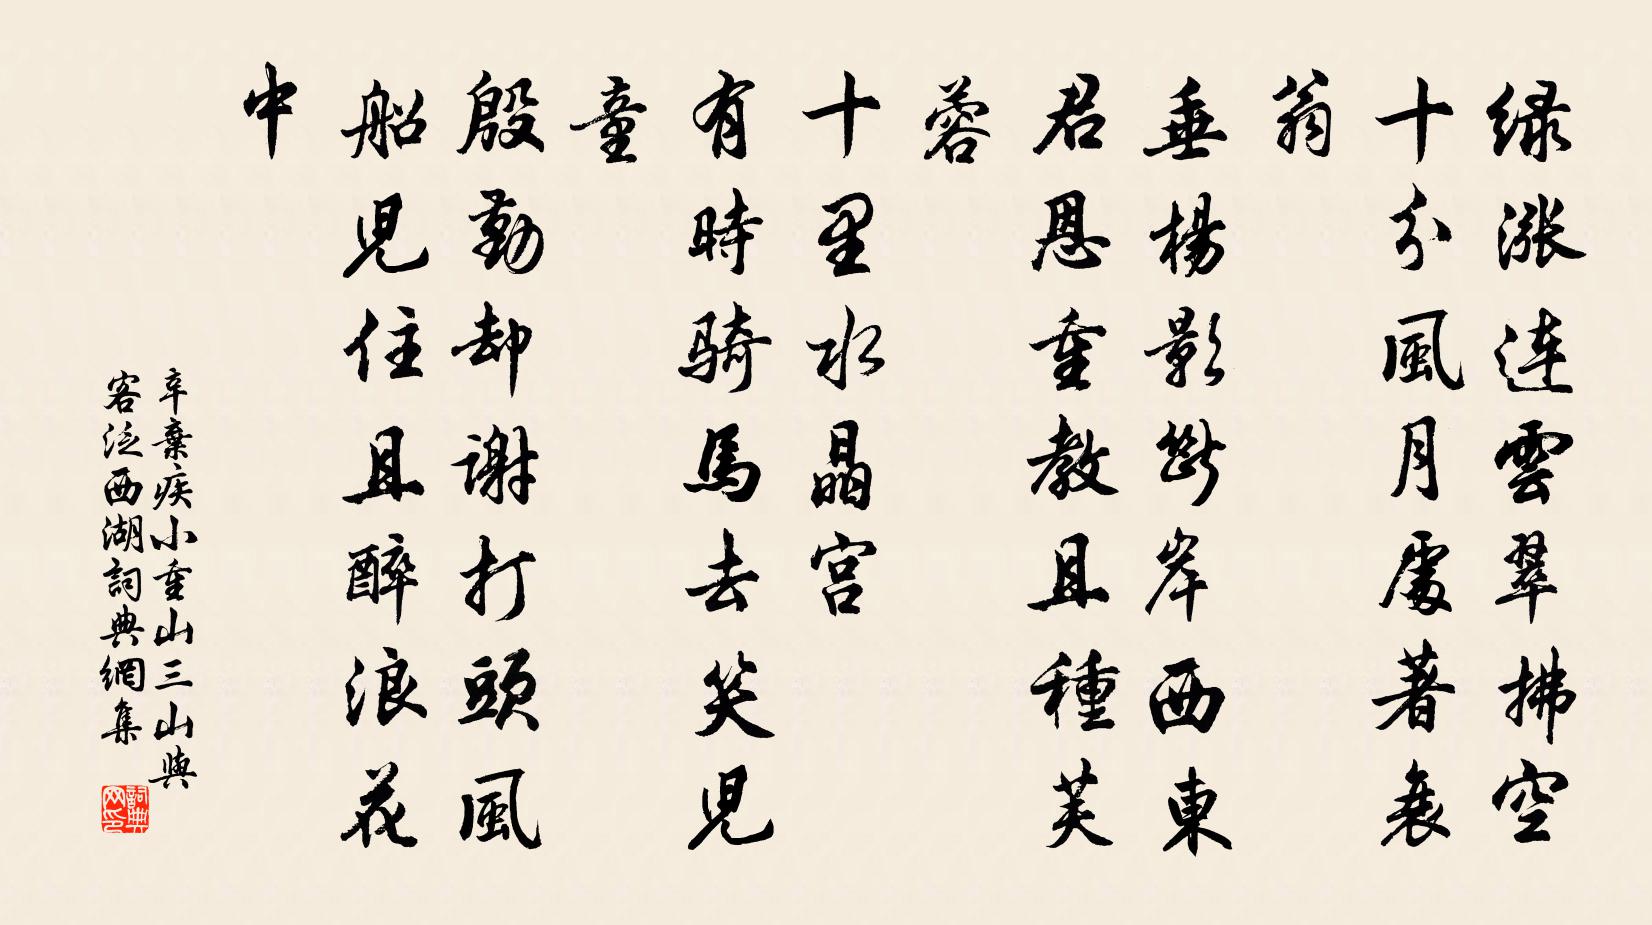 绿漲連雲翠拂空
十分風月處著衰
翁
垂楊影斷岸西東
君恩重教且種芙
蓉
十里水晶宫
有時騎馬去笑兒
童
殷勤却謝打頭風
船兒住且醉浪花
中
辛棄疾小重山三山與
客泛西湖詞典網集
詞典
网印